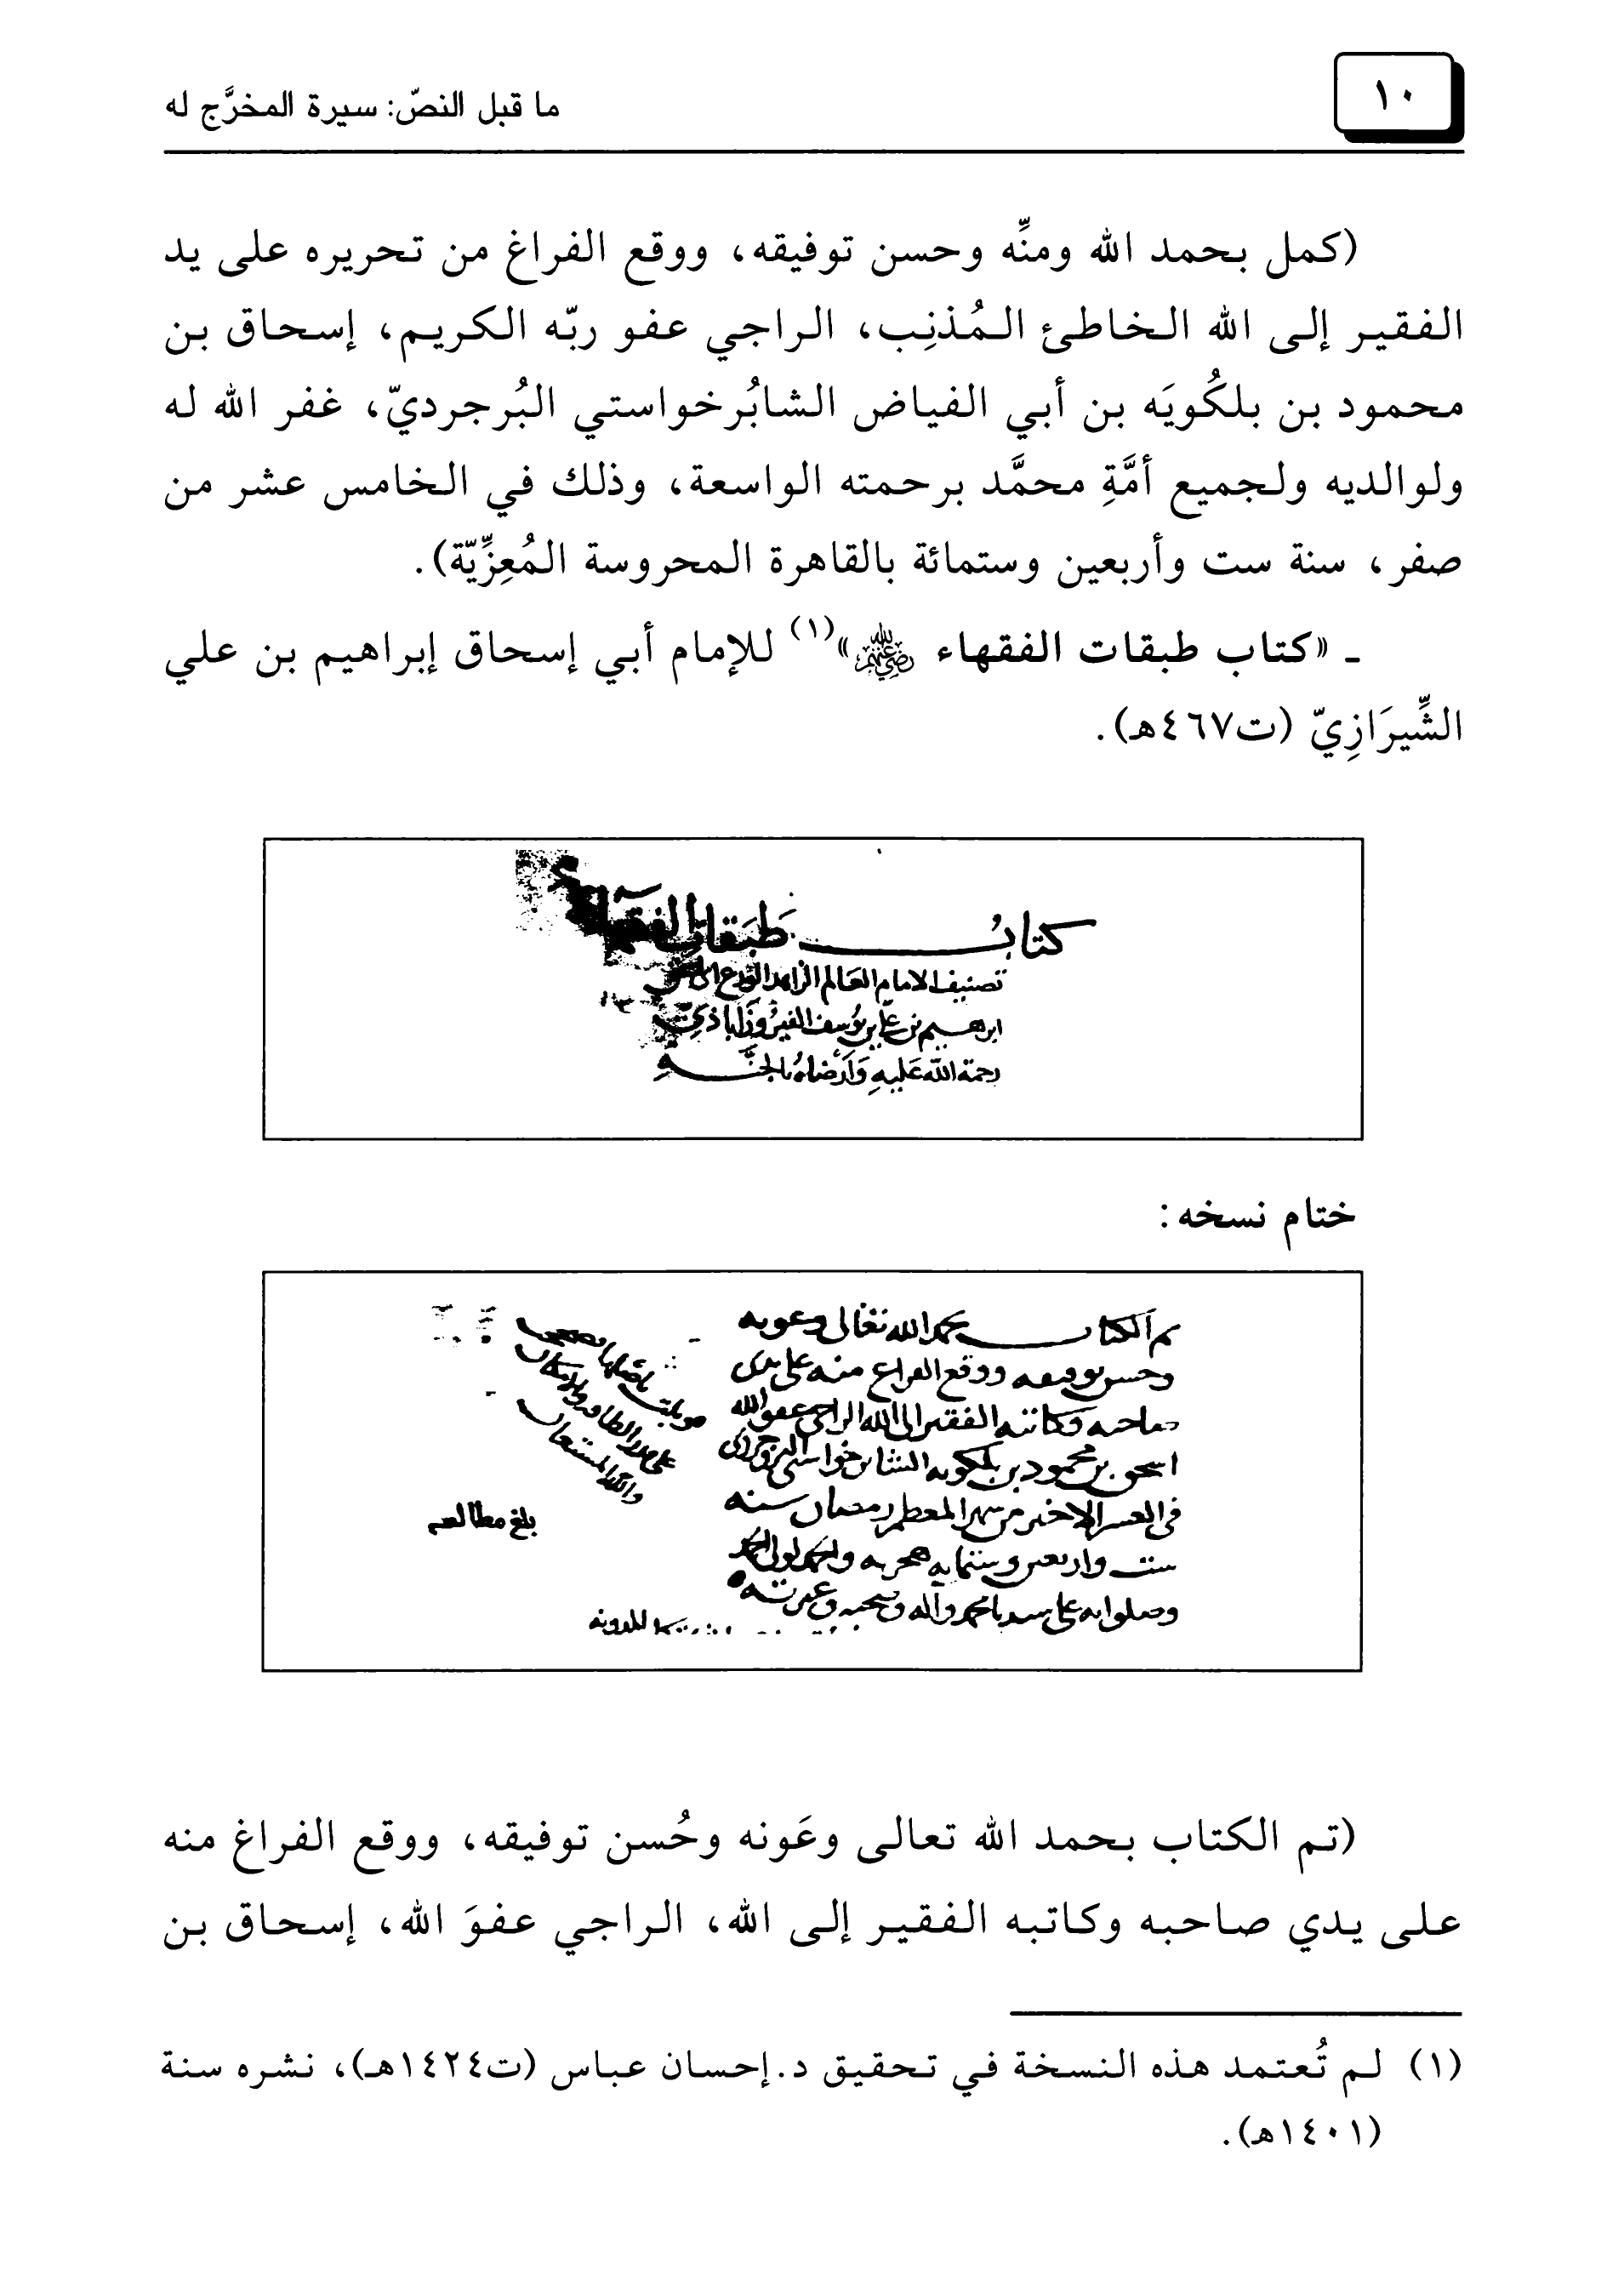 ١٠
ما قبل النصّ: سيرة المخرَّج له
(كمل بحمد الله ومنِّه وحسن توفيقه، ووقع الفراغ من تحريره على يد
الفقير إلى الله الخاطئ المُذنِب، الراجي عفو ربّه الكريم، إسحاق بن
محمود بن بلكُويَه بن أبي الفياض الشابُرخواستي البُرجرديّ، غفر الله له
ولوالديه ولجميع أمَّةِ محمَّد برحمته الواسعة، وذلك في الخامس عشر من
صفر، سنة ست وأربعين وستمائة بالقاهرة المحروسة المُعِزِّيّة).
ـ «كتاب طبقات الفقهاء رضي الله عنهم»(١) للإمام أبي إسحاق إبراهيم بن علي
الشِّيرَازِيّ (ت٤٦٧هـ).
كتاب طبقات الفقهاء
تصنيف الامام العالم الزاهد الورع ابى اسحق
ابرهيم بن على بن يوسف الفيروزاباذى
رحمة الله عليه وارضاه بالجنة
ختام نسخه:
تم الكتاب بحمد الله تعالى وعونه
وحسن توفيقه ووقع الفراغ منه على يدى
صاحبه وكاتبه الفقير الى الله الراجى عفو الله
اسحق بن محمود بن بلكويه الشابرخواستى البروجردى
فى العشر الاخير من شهر المعظم رمضان سنه
ست واربعين وستمايه هجريه والحمد لولى الحمد
وصلواته على سيدنا محمد وآله وصحبه وعترته
بلغ مطالعه
(تم الكتاب بحمد الله تعالى وعَونه وحُسن توفيقه، ووقع الفراغ منه
على يدي صاحبه وكاتبه الفقير إلى الله، الراجي عفوَ الله، إسحاق بن
(١) لم تُعتمد هذه النسخة في تحقيق د.إحسان عباس (ت١٤٢٤هـ)، نشره سنة
(١٤٠١هـ).